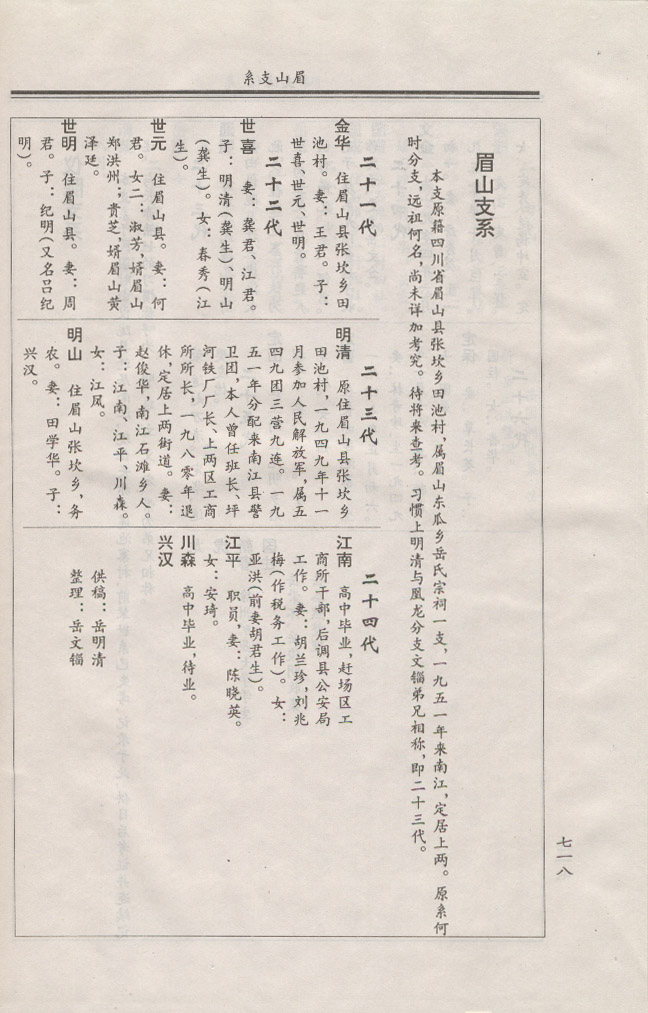 眉山支系
眉山支系
本支原籍四川省眉山县张坎乡田池村，属眉山东瓜乡岳氏宗祠一支，一九五一年来南江，定居上两。原系何
时分支，远祖何名，尚未详加考究。待将来查考。习惯上明清与凰龙分支文锱弟兄相称，即二十三代。
二十一代
金华 住眉山县张坎乡田
池村。妻：王君。子：
世喜、世元、世明。
二十二代
世喜 妻：龚君、江君。
子：明清（龚生）、明山
（龚生）。女：春秀（江
生）。
世元 住眉山县。妻：何
君。女二：淑芳，婿眉山
郑洪州；贵芝，婿眉山黄
泽廷。
世明 住眉山县。妻：周
君。子：纪明（又名吕纪
明）。
二十三代
明清 原住眉山县张坎乡
田池村，一九四九年十一
月参加人民解放军，属五
四九团三营九连。一九
五一年分配来南江县警
卫团，本人曾任班长、坪
河铁厂厂长、上两区工商
所所长，一九八零年退
休，定居上两街道。妻：
赵俊华，南江石滩乡人。
子：江南、江平、川森。
女：江凤。
明山 住眉山张坎乡，务
农。妻：田学华。子：
兴汉。
二十四代
江南 高中毕业，赶场区工
商所干部，后调县公安局
工作。妻：胡兰珍，刘兆
梅（作税务工作）。女：
亚洪（前妻胡君生）。
江平 职员，妻：陈晓英。
女：安琦。
川森 高中毕业，待业。
兴汉
供稿：岳明清
整理：岳文锱
七一八